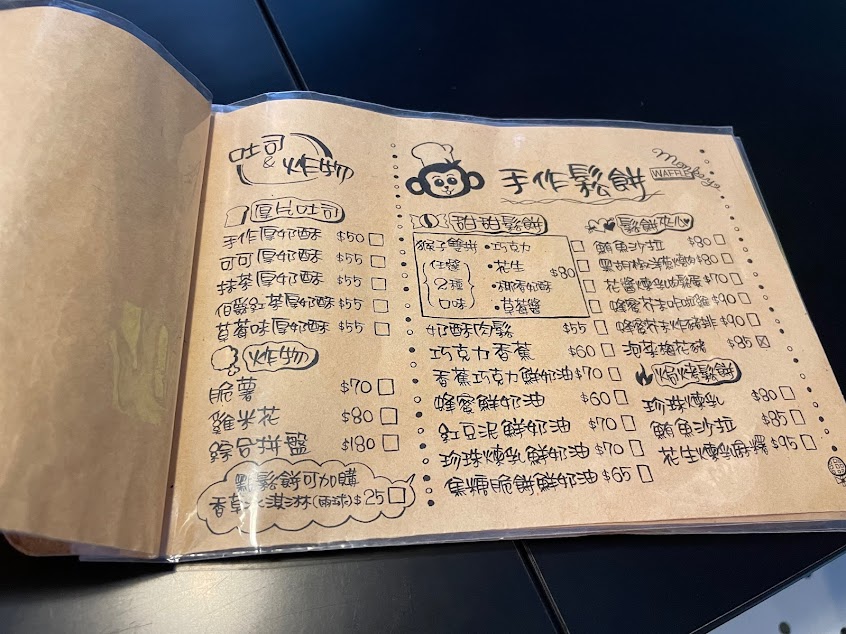 吐司
&
炸物
厚片吐司
手作厚奶酥 $50
可可厚奶酥 $55
抹茶厚奶酥 $55
伯爵紅茶厚奶酥 $55
草莓味厚奶酥 $55
炸物
脆薯 $70
雞米花 $80
綜合拼盤 $180
點鬆餅可加購
香草冰淇淋(兩球)$25
手作鬆餅
Monkey
WAFFLE
甜甜鬆餅
猴子雙拼 •巧克力
任選 •花生 $80
2種 •椰香奶酥
口味 •草莓醬
奶酥肉鬆 $55
巧克力香蕉 $60
香蕉巧克力鮮奶油 $70
蜂蜜鮮奶油 $60
紅豆泥鮮奶油 $70
珍珠煉乳鮮奶油 $70
焦糖脆餅鮮奶油 $65
鬆餅夾心
鮪魚沙拉 $80
黑胡椒洋蔥燻肉 $80
花醬煉乳 $70
蜂蜜芥末咔啦雞 $90
蜂蜜芥末炸豬排 $90
泡菜梅花豬 $85
焗烤鬆餅
珍珠煉乳 $80
鮪魚沙拉 $85
花生煉乳麻糬 $95